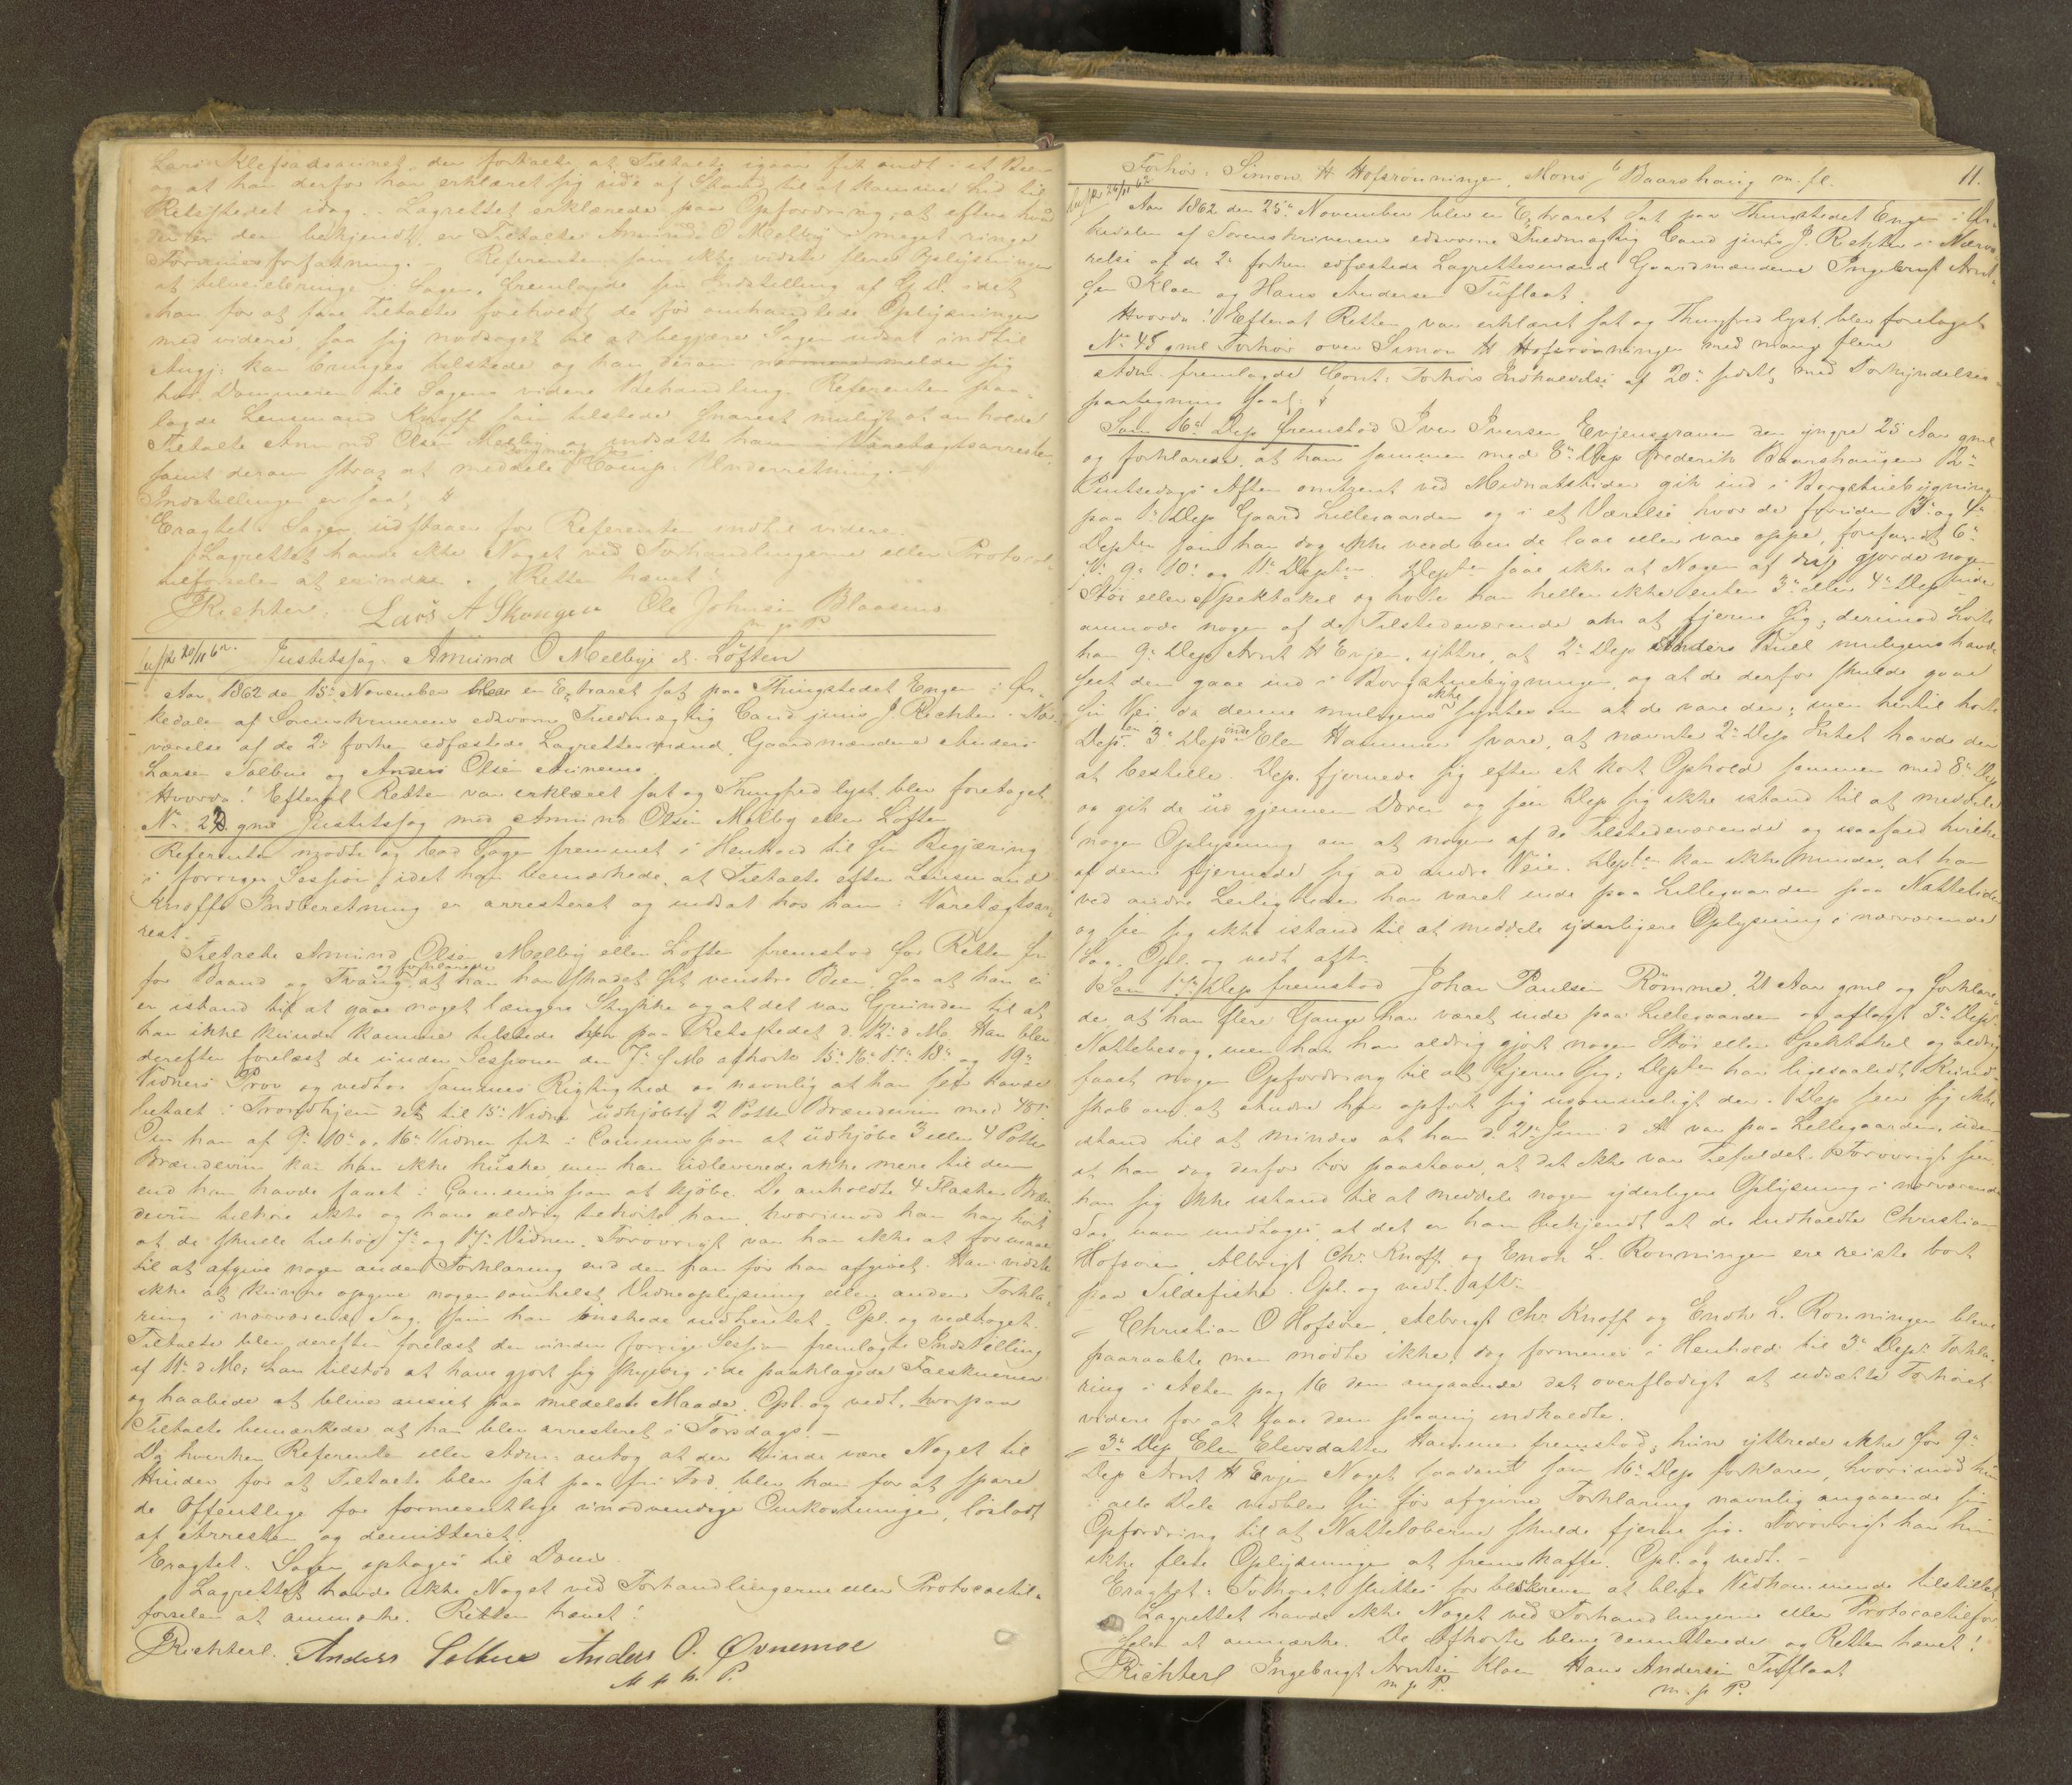 Lars Klefsaasaunet, der fortalte, at Tiltalte igaar fik ondt i et Been
og at han derfor har erklæret sig ude af Stand til at komme hid til
Retsstedet idag. Lagrettet erklærede paa Opfordring, at efter hvad
der er dem bekjendt, er Tiltalte Amund O Melby i meget ringe
Formuesforfatning. – Referenten som ikke vidste flere Oplysninger
at tilveiebringe i Sagen, fremlagde sin Indstilling af G. D. idet
han for at faae Tiltalte foreholdt de før omhandlede Oplysninger
med videre, saa sig nødsaget til at begjære Sagen udsat indtil
Angj: kan bringes tilstede og han derom melder sig
hos Dommeren til Sagens videre Behandling. Referenten paa-
lagde Lensmand Knoff som tilstede snarest muligt at anholde
Tiltalte Amund Olsen Melby og indsætte ham i Varetægtsarresten
samt derom strax at meddele Comp. Underretning.
Indstillingen er saal:
Eragtet. Sagen udstaaer for Referenten indtil videre.
Lagrettet havde ikke Noget ved Forhandlingerne eller Protocol-
tilførselen at erindre. Retten hævet!
JRichter. Lars A Skougen Ole Johnsen Blaasmo
m. p. P.
20/11 62. Justitssag: Amund O Melbye el. Løften
Aar 1862 den 15de November blev en Extraret sat paa Thingstedet Engen i Ør-
kedalen af Sorenskriverens edsvorne Fuldmægtig Cand juris J. Richter i Nær
værelse af de 2de forhen edfæstede Lagrettesmænd, Gaardmændene Anders
Larsen Solbue og Anders Olsen
Hvorda! Efterat Retten var erklæret sat og Thingfred lyst, blev foretaget
No 2 gml Justitssag mod Amund Olsen Melby eller Løften
Referenten mødte og bad Sagen fremmet i Henhold til sin Begjæring
i forrige Session, idet han bemærkede, at Tiltalte efter Lensmand
Knoffs Indberetning er arresteret og indsat hos ham i Varetægtsar-
rest.
Tiltalte Amund Olsen Melby eller Løften fremstod for Retten fri
for Baand og Tvang og forklarede at han har skadet sit venstre Been, saa at han ei
er istand til at gaae noget længere Stykke og at det var Grunden til at
han ikke kunde komme tilstede her paa Retsstedet d. 12te d. M. Han blev
derefter forelæst de under Sessionen den 7de f M afhørte 15de 16de 17de 18de og 19de
Vidners Prov og vedtog sammes Rigtighed og navnlig at han selv havde
betalt i Trondhjem det til 15de Vidne udkjøbte 2 Potter Brændeviin med 48s.
Om han af 9de 10de og 16de Vidner fik i Commission at udkjøbe 3 eller 4 Potter
Brændeviin, kan han ikke huske men han udleverede ikke mere til dem
end han havde faaet i Commission at kjøbe. De anholdte 4 Flasker Bræn-
deviin tilhøre ikke og have aldrig tilhørt ham, hvorimod han har hørt
at de skulle tilhøre 7de og 17de Vidner. Forøvrigt var han ikke at formaae
til at afgive nogen anden Forklaring end den han før har afgivet. Han vidste
ikke at kunne opgive nogensomhelst Vidneoplysning eller anden Forkla-
ring i nærværende Sag, som han ønskede indhentet. Opl. og vedtaget.
Tiltalte blev derefter forelæst den under forrige Session fremlagte Indstilling
af 11te d. M; han tilstod at have gjort sig skyldig i de paaklagede
og haabede at blive anseet paa mildeste Maade. Opl. og vedt. hvorpaa
Tiltalte bemærkede, at han blev arresteret i Torsdags. –
Da hverken Referenten eller Adm. antog at der kunde være Noget til
Hinder for at Tiltalte blev sat paa fri Fod, blev han for at spare
de Offentlige for formeentlige unødvendige Omkostninger, løsladt
af Arresten og demitteret.
Eragtet. Sagen optages til Dom.
Lagrettet havde ikke Noget ved Forhandlingerne eller Protocoltil-
førselen at anmærke. Retten hævet!
JRichter. Anders Solbue Anders O. Øvnemoe
M p h. P.
Forhør: Simon H Hofsrønningen, Mons Baarshaug m. fl. 11.
26/11 62
Aar 1862 den 25de November blev en Extraret sat paa Thingstedet Engen i Ør-
kedalen af Sorenskriverens edsvorne Fuldmægtig Cand juris J. Richter i Nærvæ-
relse af de 2de forhen edfæstede Lagrettesmænd Gaardmændene Ingebrigt Arnt-
sen Kloen og Hans Andersen Tuflaat.
Hvorda! Efterat Retten var erklæret sat og Thingfred lyst, blev foretaget
No 45 gml Forhør over Simon H Hofsrønningen med mange flere
Adm. fremlagde Cont: Forhørs Indkaldelse af 20de sidstl, med Forkyndelses-
paategning saal:
Som 16de Dep fremstod Iver Iversen Evjensgraven den yngre 25 Aar gml
og forklarede, at han sammen med 8de Dep Frederik Baarshaugen 2den
Pintsedags Aften omtrent ved Midnatstider gik ind i Borgstuebygningen
paa 1ste Dep Gaard Lillegaarden og i et Værelse hvor de foruden 3de og 4de
Depter som han dog ikke veed om de laae eller vare oppe, forefandt 6te
7de 9de 10de og 11te Depter. Depten saae ikke at Nogen af disse gjorde nogen
Støi eller Spektakel og hørte han heller ikke enten 3de eller 4de Dep inde
anmode nogen af de Tilstedeværende om at fjerne sig; derimod hørte
han 9de Dep Arnt H Evjen, yttre, at 2den Dep Anders Buel muligens havde
seet dem gaae ind i Borgstuebygningen, og at de derfor skulde gaae
sin Vei, da denne muligens ikke syntes om at de vare der; men hertil hørte
Depten 3de Dep inde Elen Hammer svare, at nævnte 2den Dep Intet havde der
at bestille. Dep. fjernede sig efter et kort Ophold sammen med 8de Dep
og gik de ud gjennem Døren og seer Dep sig ikke istand til at meddele
nogen Oplysning om at nogen af de Tilstedeværende og isaafald hvilke
af dem fjernede sig ad andre Veie. Depten kan ikke mindes, at han
ved andre Leiligheder har været inde paa Lillegaarden paa Nattetider
og seer sig ikke istand til at meddele yderligere Oplysning i nærværende
Sag. Opl. og vedt. aftr.
Som 17de Dep fremstod Johan Paulsen Rømme, 21 Aar gml og forklare-
de, at han flere Gange har været inde paa Lillegaarden og aflagt 3de Dep.
Nattebesøg, men han har aldrig gjort nogen Støi eller Spektakel og aldrig
faaet nogen Opfordring til at fjerne sig; Depten har ligesaalidt Kund-
skab om at Andre har opført sig usømmeligt der. Dep seer sig ikke
istand til at mindes at han d. 21de Juni d A var paa Lillegaarden, uden
at han dog derfor tør paastaae, at det ikke var Tilfældet. Forøvrigt seer
han sig ikke istand til at meddele nogen yderligere Oplysning i nærværende
Sag, naar undtages, at det er ham bekjendt at de indkaldte Christian
Hofsøien, Albrigt Chr. Knoff og Enok L. Rønningen ere reiste bort
paa Sildefiske. Opl. og vedt. aftr.
Christian O Hofsøien, Albrigt Chr. Knoff og Enok L. Rønningen bleve
paaraabte men mødte ikke, dog formenes i Henhold til 3de Deps Forkla-
ring i Acten pag 16 dem angaaende det overflødigt at udsætte Forhøret
videre for at faae dem paany indkaldte.
3de Dep Elen Elevsdatter Hammer fremstod; hun yttrede ikke for 9de
Dep Arnt H Evjen Noget saadant som 16de Dep forklarer, hvorimod hun
i alle Dele vedblev sin før afgivne Forklaring navnlig angaaende sin
Opfordring til at Natteløberne skulde fjerne sig. Forøvrigt har hun
ikke flere Oplysninger at fremskaffe. Opl. og vedt. –
Eragtet: Forhøret sluttes for beskreven at blive Vedkommende tilstillet.
Lagrettet havde ikke Noget ved Forhandlingerne eller Protocoltilfør-
selen at anmærke. De Afhørte bleve demitterede og Retten hævet!
JRichter Ingebrigt Arntsen Kloen Hans Andersen Tuflaat
m. p P. m. p P.